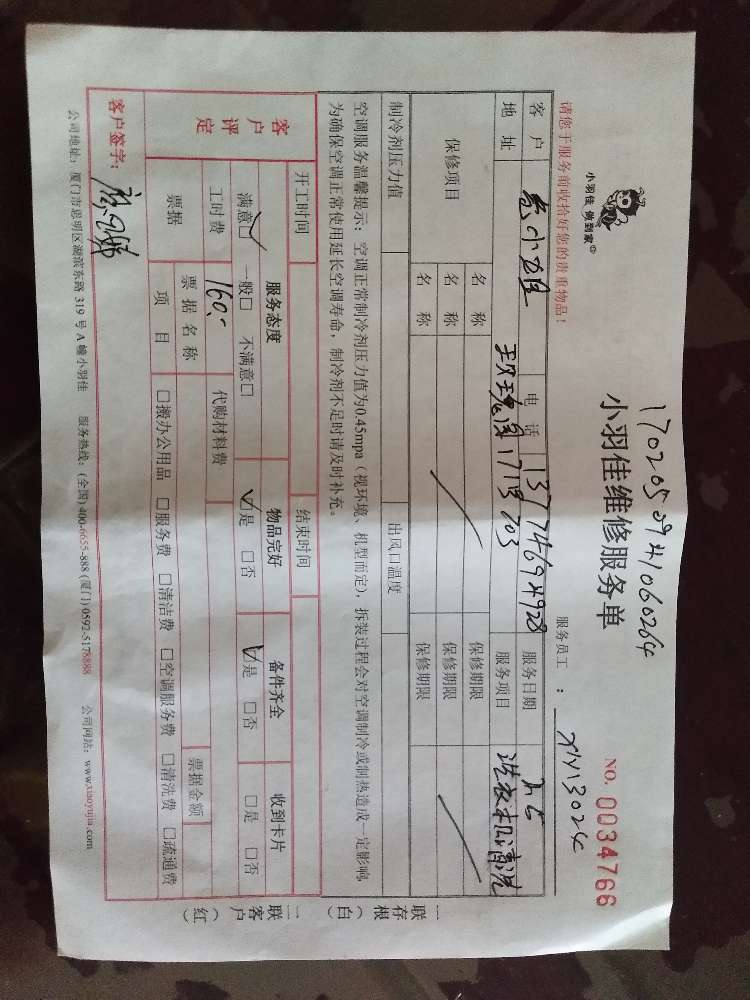 1702050941060264
小羽佳 做到家
小羽佳维修服务单
NO. 0034766
请您于服务前收拾好您的贵重物品！
服务员工：XIY13024
客户
电话 13774694928
服务日期 2.5
地址 玫瑰园1713703
服务项目 洗衣机清洗
保修项目
名称
保修期限
名称
保修期限
名称
保修期限
制冷剂压力值
出风口温度
空调服务温馨提示：空调正常制冷剂压力值为0.45mpa（视环境、机型而定），拆装过程会对空调制冷或制热造成一定影响，
为确保空调正常使用延长空调寿命，制冷剂不足时请及时补充。
开工时间
结束时间
客户评定
服务态度
物品完好
备件齐全
收到卡片
满意☑ 一般□ 不满意□
☑是 □否
☑是 □否
□是 □否
工时费 160.-
代购材料费
票据
票据名称
票据金额
项目
□搬办公用品 □服务费 □清洁费 □空调服务费 □清洗费 □疏通费
客户签字：
公司地址：厦门市思明区湖滨东路 319 号 A 幢小羽佳 服务热线：(全国) 400-6655-888 (厦门) 0592-5178888 公司网站：www.xiaoyujia.com
一联存根（白）
二联客户（红）